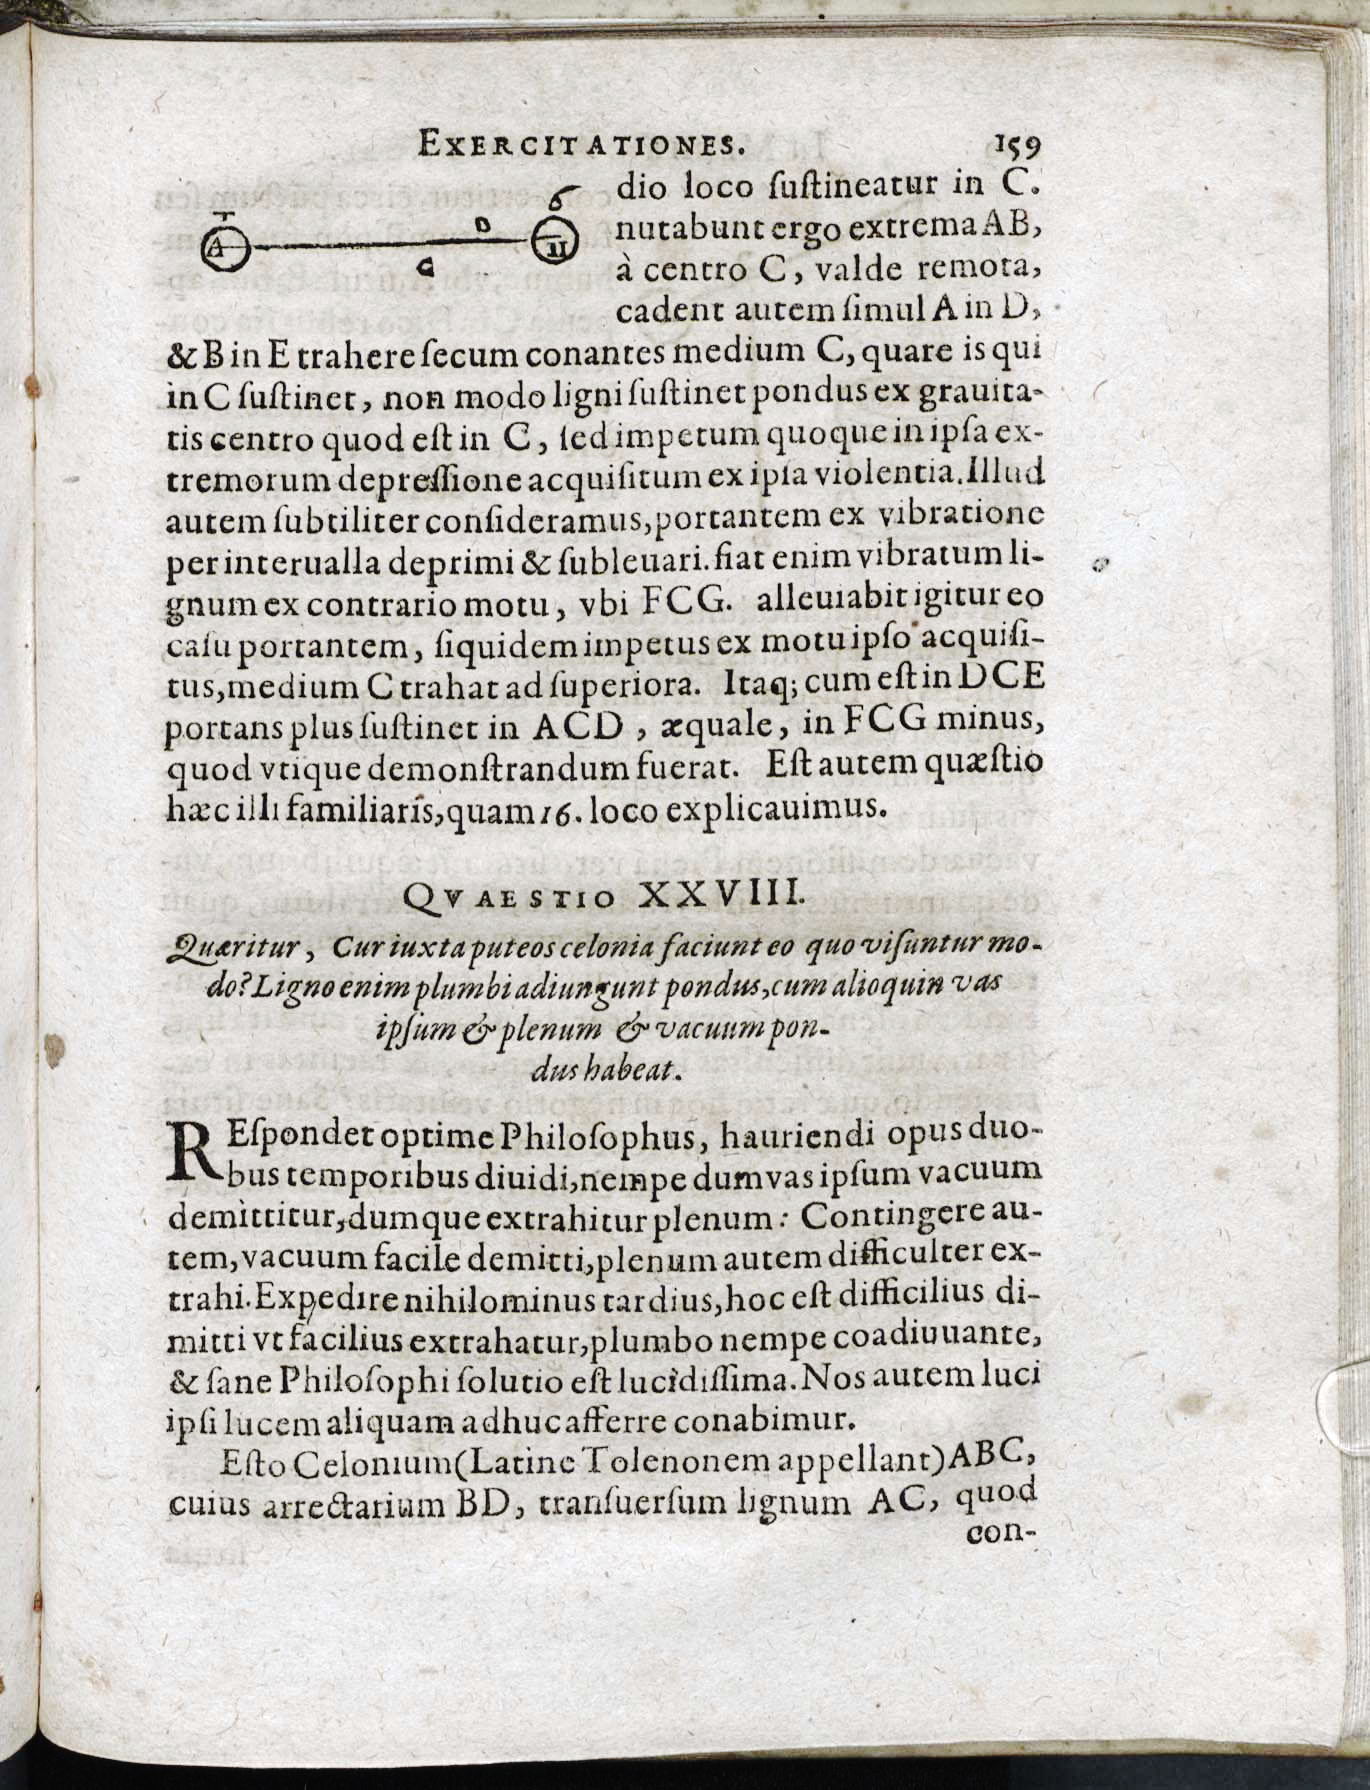 EXERCITATIONES. 159
dio loco ſuſtineatur in C.
nutabunt ergo extrema AB,
à centro C, valde remota,
cadent autem ſimul A in D,
A
D
C
& B in E trahere ſecum conantes medium C, quare is qui
in C ſuſtinet, non modo ligni ſuſtinet pondus ex grauita-
tis centro quod eſt in C, ſed impetum quoque in ipſa ex-
tremorum depreſſione acquiſitum ex ipſa violentia. Illud
autem ſubtiliter conſideramus, portantem ex vibratione
per interualla deprimi & ſubleuari. fiat enim vibratum li-
gnum ex contrario motu, vbi FCG. alleuiabit igitur eo
caſu portantem, ſiquidem impetus ex motu ipſo acquiſi-
tus, medium C trahat ad ſuperiora. Itaq; cum eſt in DCE
portans plus ſuſtinet in ACD, æquale, in FCG minus,
quod vtique demonſtrandum fuerat. Eſt autem quæſtio
hæc illi familiaris, quam 16. loco explicauimus.
QVAESTIO XXVIII.
Quæritur, Cur iuxta puteos celonia faciunt eo quo viſuntur mo-
do? Ligno enim plumbi adiungunt pondus, cum alioquin vas
ipſum & plenum & vacuum pon-
dus habeat.
REſpondet optime Philoſophus, hauriendi opus duo-
bus temporibus diuidi, nempe dum vas ipſum vacuum
demittitur, dumque extrahitur plenum: Contingere au-
tem, vacuum facile demitti, plenum autem difficulter ex-
trahi. Expedire nihilominus tardius, hoc eſt difficilius di-
mitti vt facilius extrahatur, plumbo nempe coadiuuante,
& ſane Philoſophi ſolutio eſt lucidiſſima. Nos autem luci
ipſi lucem aliquam adhuc afferre conabimur.
Eſto Celonium (Latine Tolenonem appellant) ABC,
cuius arrectarium BD, tranſuerſum lignum AC, quod
con-